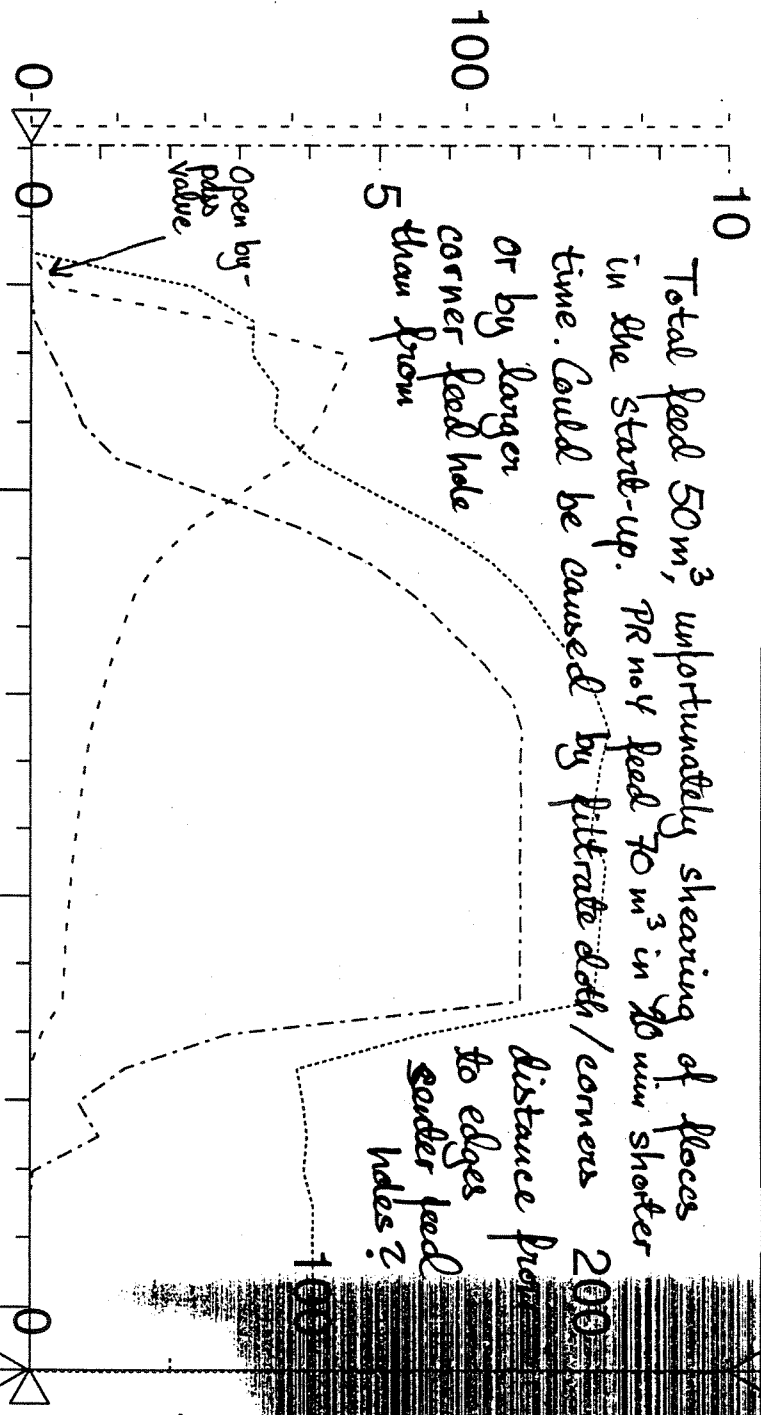 10
Total feed 50 m³, unfortunately shearing of floccs
in the start-up. PR no 4 feed 70 m³ in 20 min shorter
time. Could be caused by filtrate cloth/corners
or by larger
corner feed hole
than from
distance from
to edges
center feed
holes?
Open by-
pass
valve
100
5
0
0
200
100
0